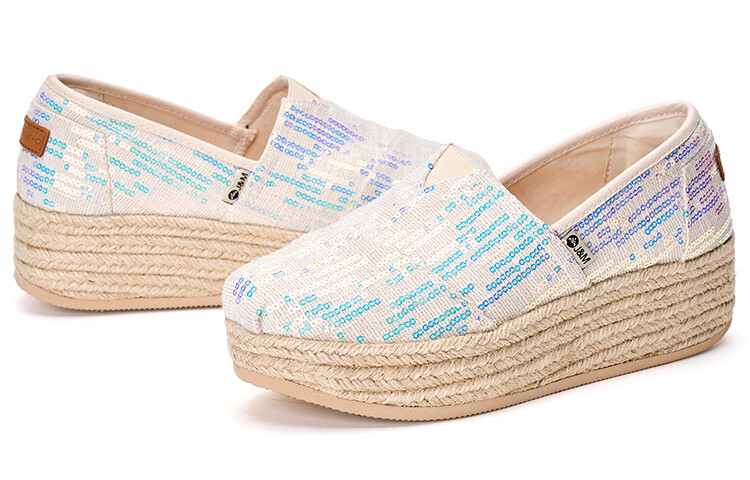 J&M
J&M